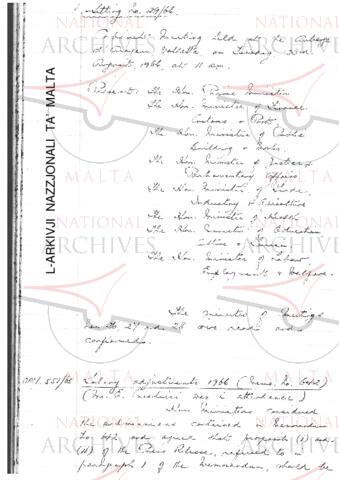 Sitting No. 29/66.
Cabinet Meeting held at the Auberge
d'Aragon Valletta on Tuesday 23rd
August 1966 at 11 am.
Present: The Hon. Prime Minister
The Hon. Minister of Finance
Customs & Port
The Hon. Minister of Public
Building & Works.
The Hon. Minister of Justice &
Parliamentary Affairs
The Hon. Minister of Trade,
Industry & Agriculture
The Hon. Minister of Health
The Hon. Minister of Education
Culture & Tourism
The Hon. Minister of Labour
Employment & Welfare.
The minutes of Meetings
Nos 27 and 28 were read and
confirmed.
551/65 Salary adjustments 1966 (Memo. No. 642)
(Mr. E. was in attendance)
Hon Ministers considered
the submissions contained in Memorandum
No 642 and agree that proposals (i) and
(ii) of the Press Release, referred to in
paragraph 1 of the Memorandum, should be
L-ARKIVJI NAZZJONALI TA' MALTA
NATIONAL
ARCHIVES
MALTA